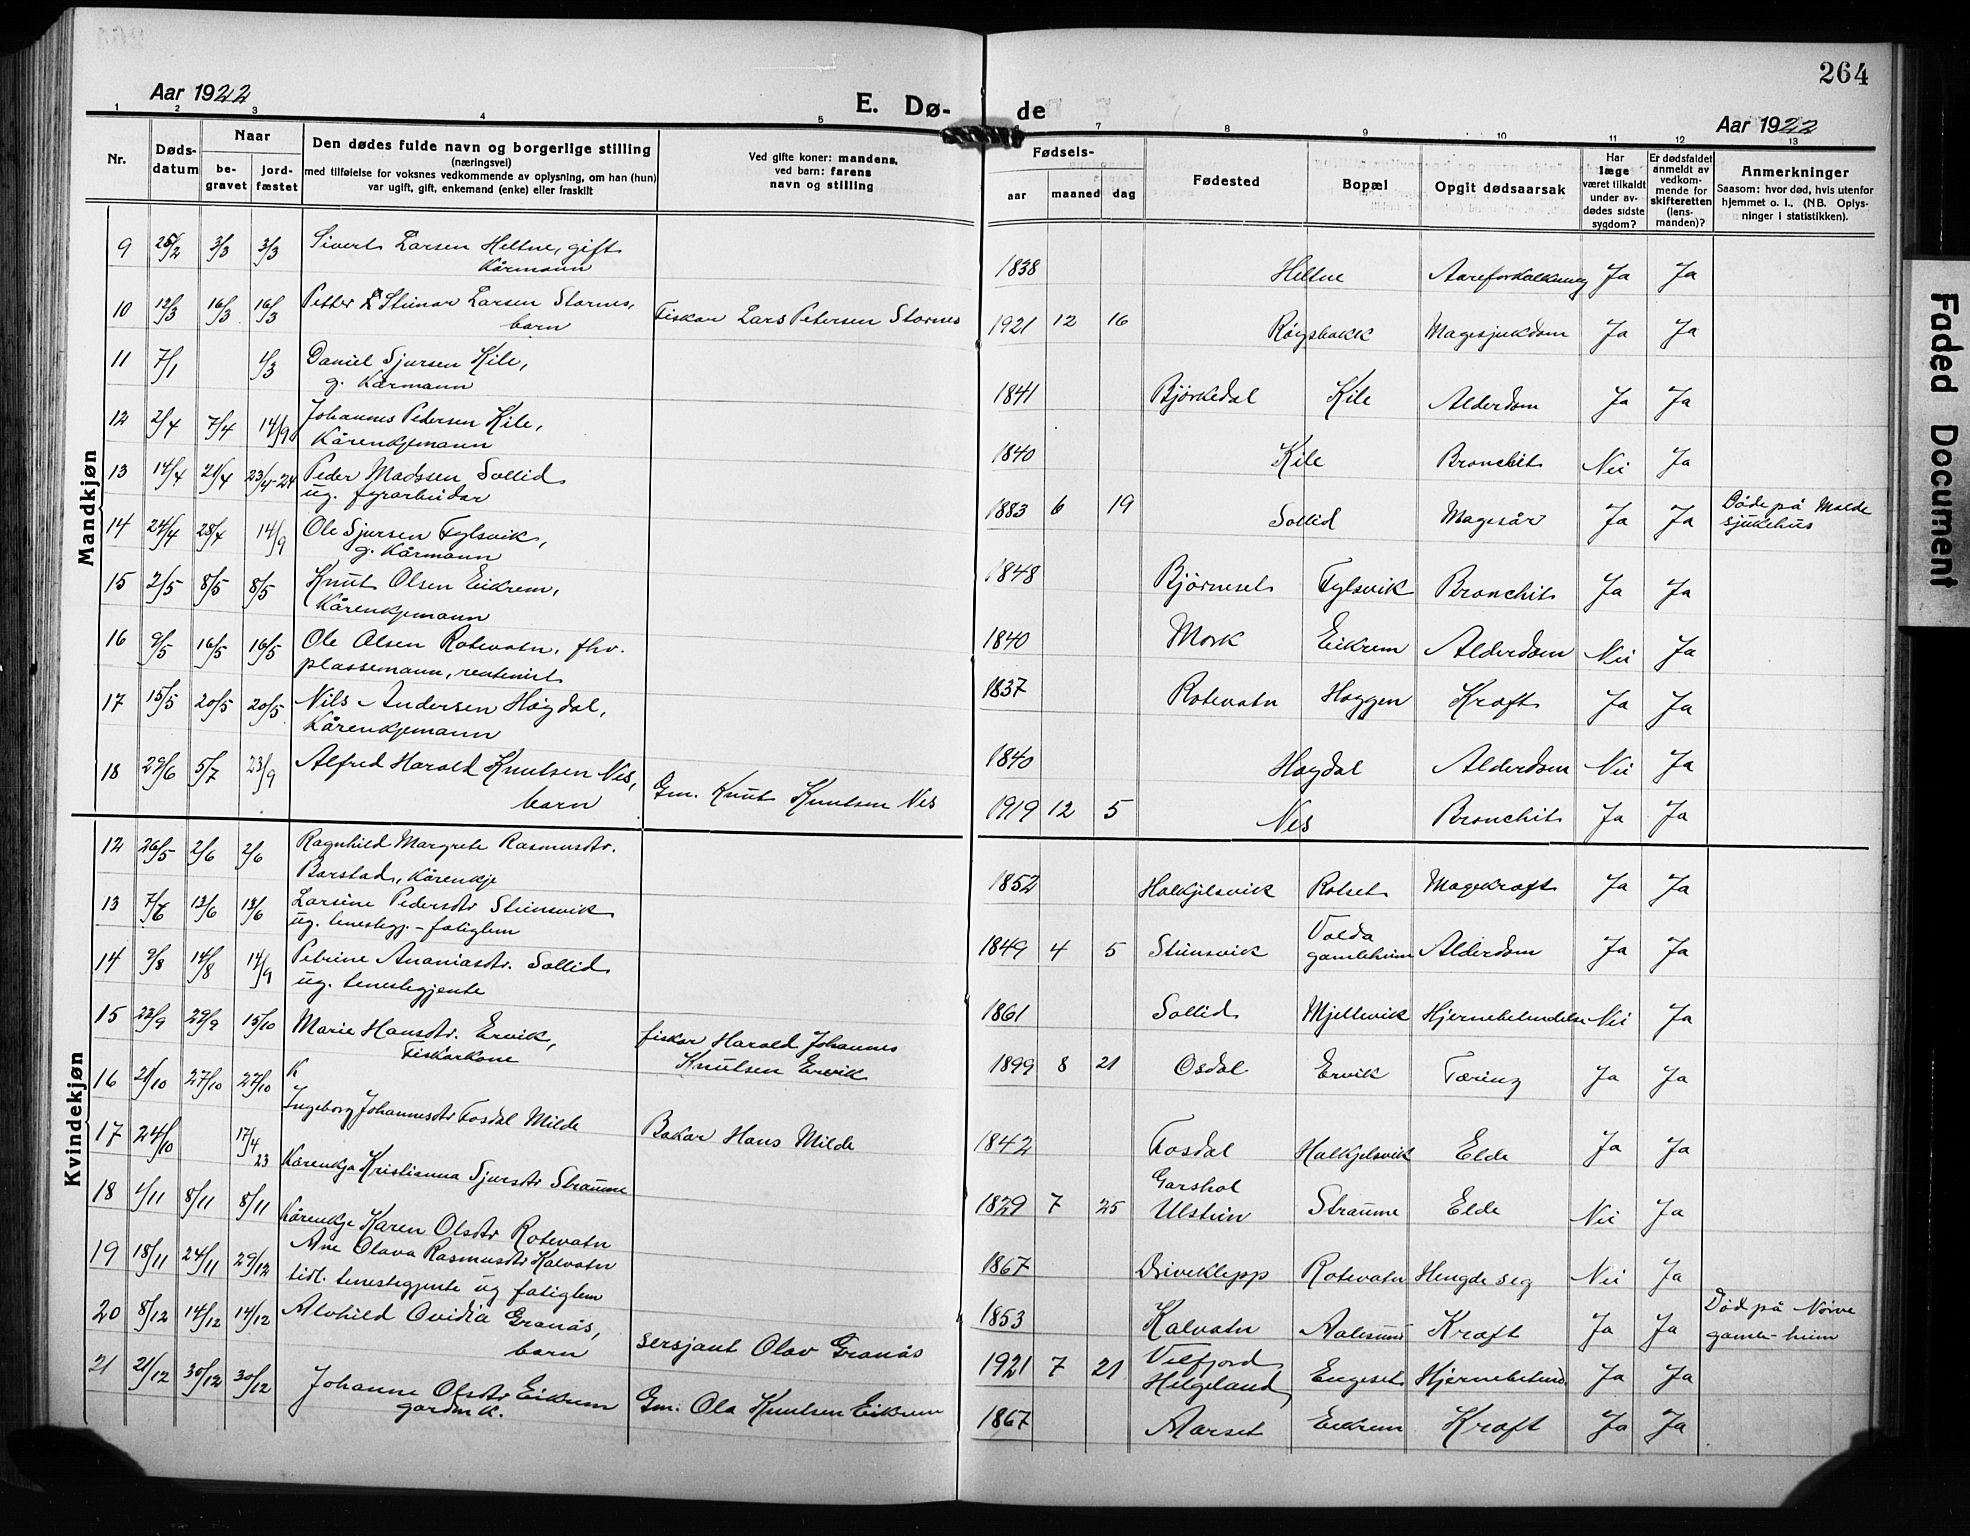 264
Aar 1922
E. Dø-
de
Aar 1922
1 2 3 4 5 7 8 9 10 11 12 13
Nr.
Døds-
datum
Naar
be-
gravet
jord-
fæstet
Den dødes fulde navn og borgerlige stilling
(næringsvei)
med tilføielse for voksnes vedkommende av oplysning, om han (hun)
var ugift, gift, enkemand (enke) eller fraskilt
Ved gifte koner: mandens,
ved barn: farens
navn og stilling
Fødsels-
aar maaned dag
Fødested
Bopæl
Opgit dødsaarsak
Har
læge
været tilkaldt
under av-
dødes sidste
sygdom?
Er dødsfaldet
anmeldt av
vedkom-
mende for
skifteretten
(lens-
manden)?
Anmerkninger
Saasom: hvor død, hvis utenfor
hjemmet o. l., (NB. Oplys-
ninger i statistikken).
Mandkjøn
9 25/2 3/3 3/3 Sivert Larsen Heltne, gift
kårmann
1838 Heltne Aareforkalkning Ja Ja
10 12/3 16/3 16/3 Petter Steinar Larsen Starnes,
barn
Fiskar Lars Petersen Starnes
1921 12 16 Røysbakk Magesjukdom Ja Ja
11 7/1 4/3 Daniel Sjursen Kile,
g. Kårmann
1841 Bjørkedal Kile Alderdom Ja Ja
12 2/4 7/4 14/9 Johannes Pedersen Kile,
Kårenkjemann
1840 Kile Bronchit Nei Ja
13 14/4 21/4 23/4-24 Peder Madssen Sollid
ug. fyrarbeidar
1883 6 19 Sollid Magesår Ja Ja Døde på Molde
sjukehus
14 24/4 28/4 14/9 Ole Sjursen Fylsvik,
g. Kårmann
1848 Bjørneset Fylsvik Bronchit Ja Ja
15 2/5 8/5 8/5 Knut Olsen Eikrem,
Kårenkjemann
1840 Mork Eikrem Alderdom Nei Ja
16 9/5 16/5 16/5 Ole Olsen Rotevatn, fhv.
plassemann, rentenist
1837 Rotevatn Haggen Kræft Ja Ja
17 15/5 20/5 20/5 Nils Andersen Høgdal,
Kårenkjemann
1840 Høgdal Alderdom Nei Ja
18 29/6 5/7 23/9 Alfred Harald Knutsen Nes,
barn
Gm. Knut Knutsen Nes
1919 12 5 Nes Bronchit Ja Ja
Kvindekjøn
12 26/5 2/6 2/6 Ragnhild Margrete Rasmusdtr.
Barstad, Kårenkje
1852 Halkjelsvik Rotset Magekræft Ja Ja
13 7/6 13/6 13/6 Larsine Pedersdtr Steinsvik
ug. tenestegj. - fatiglem
1849 4 5 Steinsvik Volda
gamleheim Alderdom Ja Ja
14 9/8 14/8 14/9 Petrine Ananiasdtr. Sollid
ug. tenestegjente
1861 Sollid Mjellevik Hjernebetendelse Nei Ja
15 23/9 29/9 15/10 Marie Hansdtr. Ervik,
Fiskarkone
fiskar Harald Johannes
Knutsen Ervik
1899 8 21 Osdal Ervik Tæring Ja Ja
16 21/10 27/10 27/10 K
Ingeborg Johannesdtr Fosdal Milde
Bakar Hans Milde
1842 Fosdal Halkjelsvik Elde Ja Ja
17 24/10 17/4 23 Kårenkja Kristianna Sjursdtr Straume
1829 7 25 Garshol
Ulstein Straume Elde Nei Ja
18 4/11 8/11 8/11 Kårenkje Karen Olsdtr Rotevatn
1867 Driveklepp Rotevatn Hengde seg Nei Ja
19 18/11 24/11 29/12 Ane Olava Rasmusdtr Kalvatn
tidl. tenestegjente ug fatiglem
1853 Kalvatn Aalesund Kræft Ja Ja Død på Nørve
gamle-heim
20 8/12 14/12 14/12 Alvhild Ovidia Granås,
barn
sersjant Olav Granås
1921 7 21 Velfjord
Helgeland Engeset Hjernebetend. Ja Ja
21 21/12 30/12 30/12 Johanne Olsdtr Eikrem
gardmk.
Gm. Ola Knutsen Eikrem
1867 Aarset Eikrem Kræft Ja Ja
Faded Document